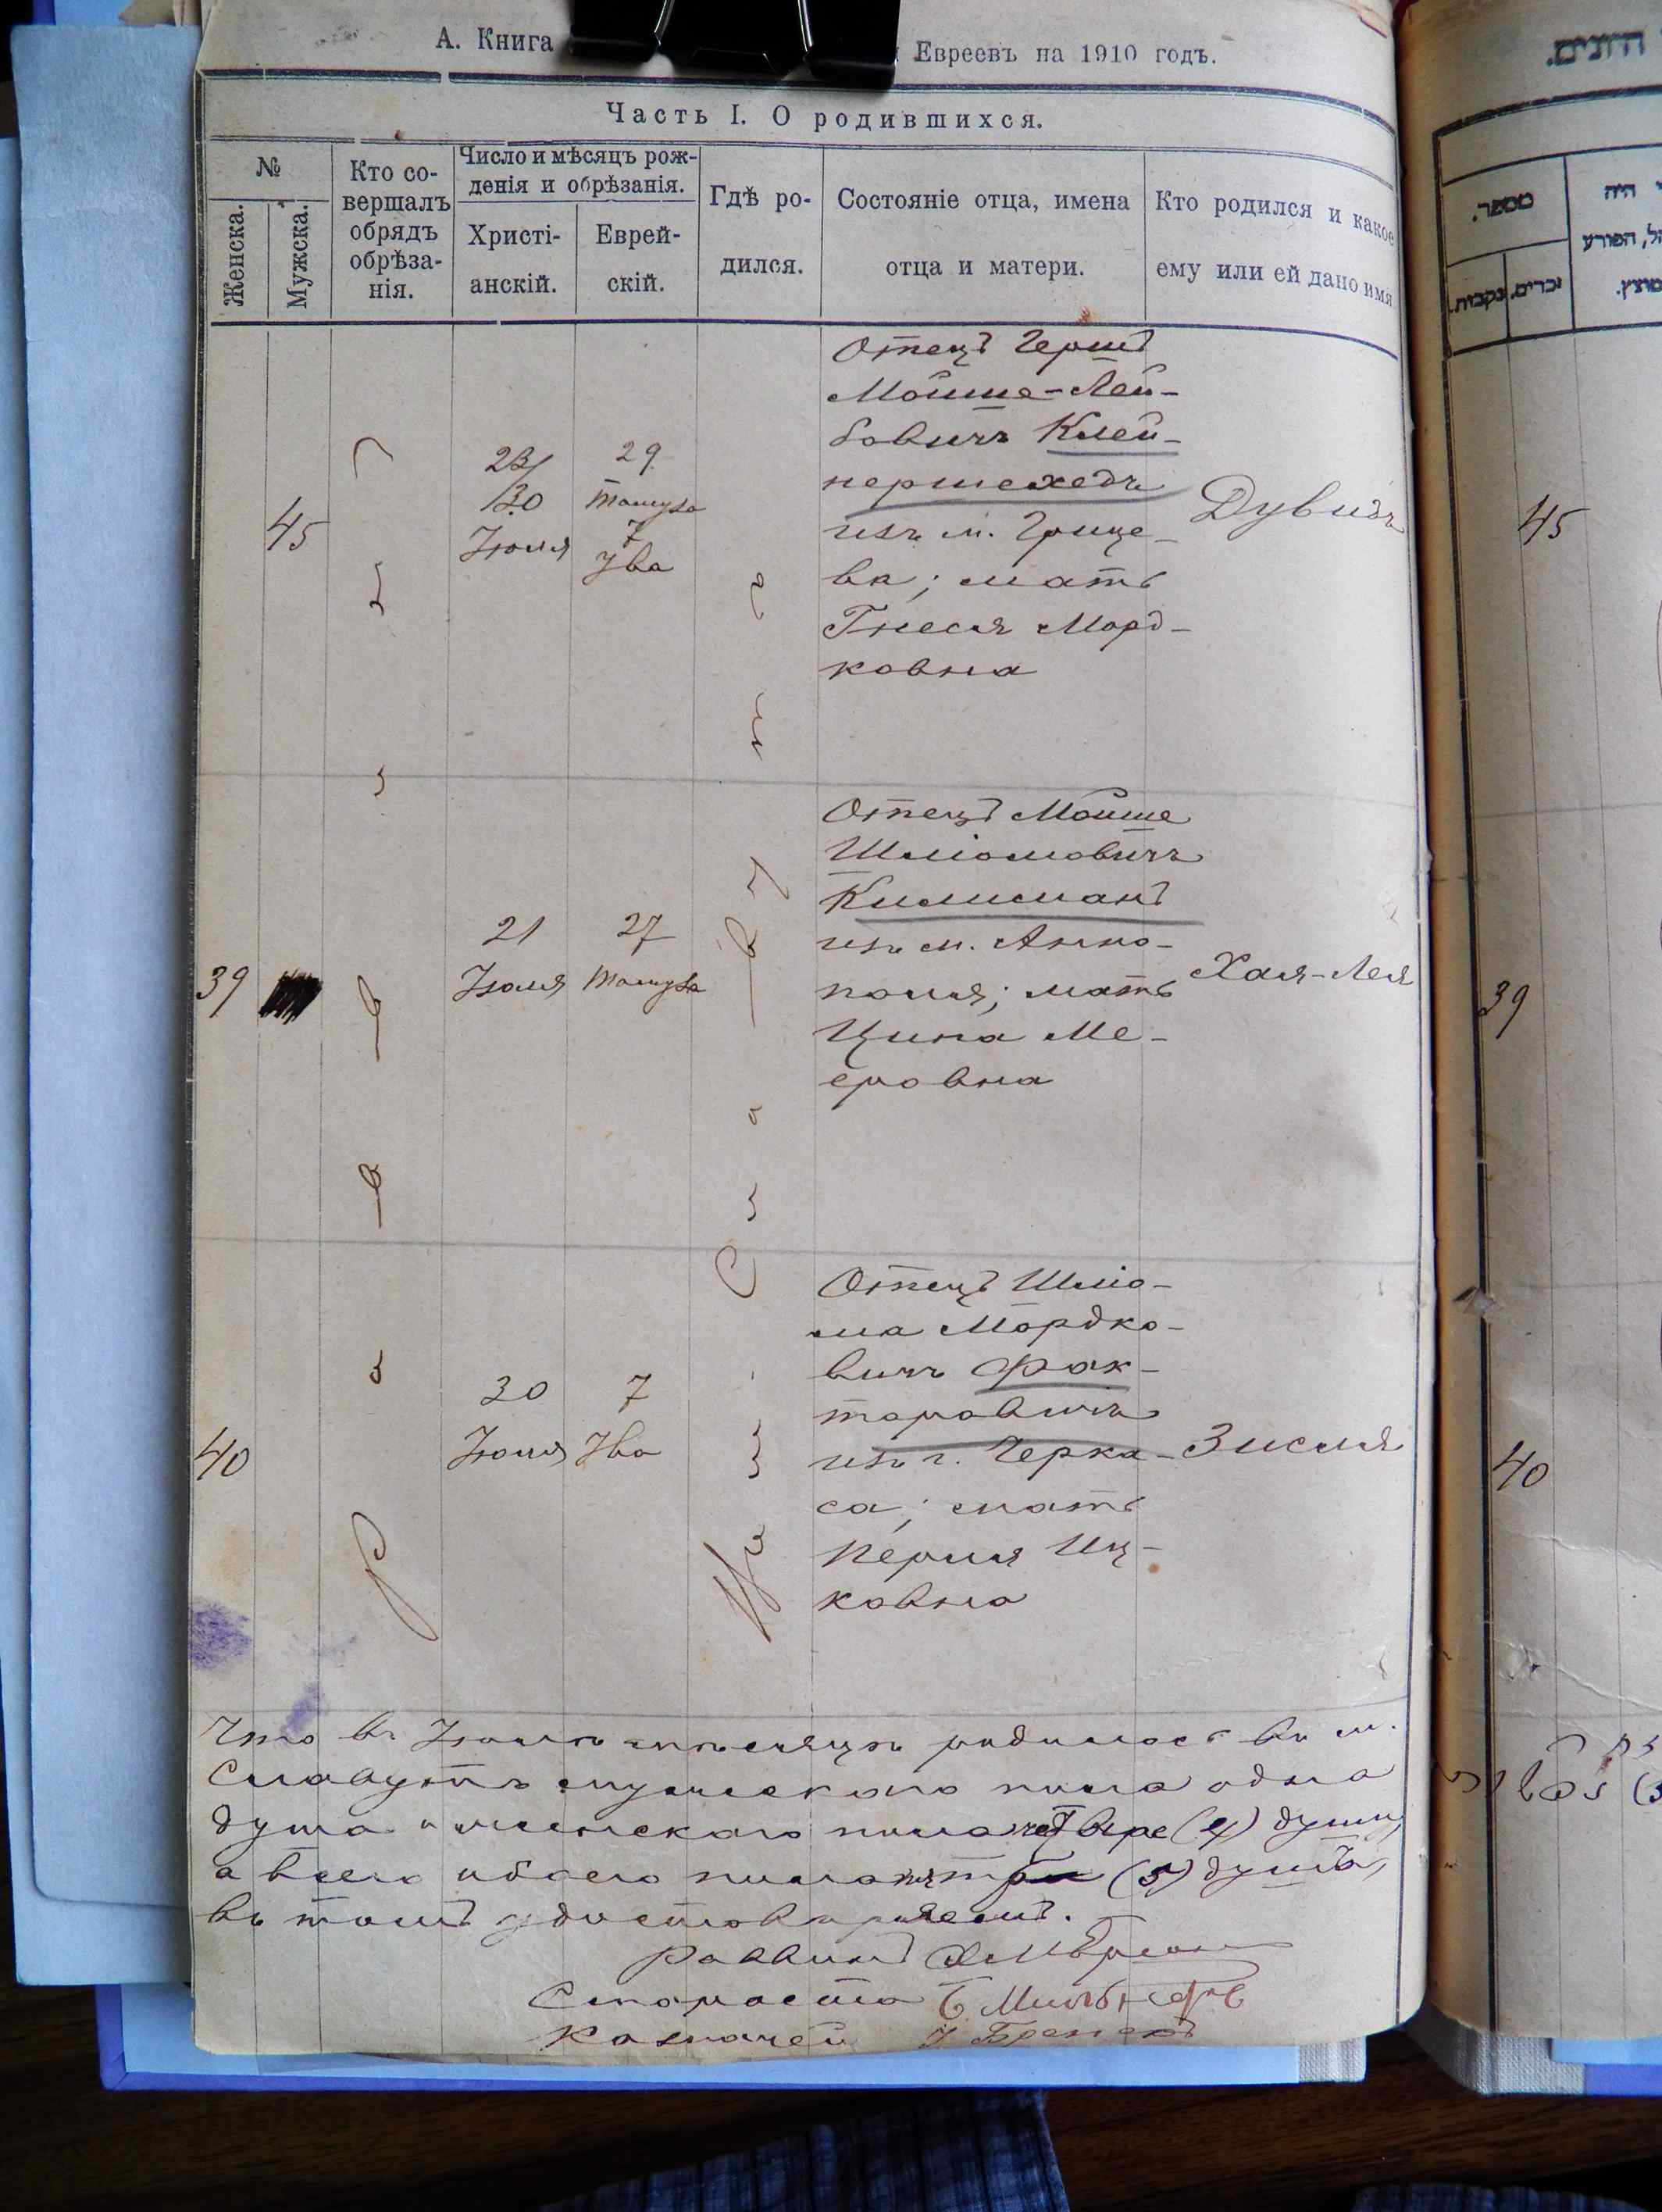 А. Книга
Евреевъ на 1910 годъ.
Часть I. О родившихся.
№
Женска.
Мужска.
Кто со-
вершалъ
обрядъ
обрѣза-
нія.
Число и мѣсяцъ рож-
денія и обрѣзанія.
Христі-
анскій.
Еврей-
скій.
Гдѣ ро-
дился.
Состояніе отца, имена
отца и матери.
Кто родился и какое
ему или ей дано имя
45
23/
/30
Іюля
29
Тамуза
7
Ува
Отецъ Гершъ
Мойше-Лей-
бовичъ Клей-
першехедъ
изъ м. Грице-
ва; мать
Гнеся Морд-
ковна
Дувидъ
39
21
Іюля
27
Тамуза
Отецъ Мойше
Шліомовичъ
Килисманъ
изъ м. Анно-
поля; мать
Ципа Ме-
еровна
Хая-Лея
40
30
Іюля
7
Ува
Отецъ Шліо-
ма Мордко-
вичъ Фак-
торовичъ
изъ г. Черка-
са; мать
Перля Иц-
ковна
Зисля
Что въ Іюлѣ мѣсяцѣ родилось въ м.
Славутѣ мужескаго пола одна
душа и женскаго пола четыре (4) души,
а всего обоего пола пять (5) душъ,
въ томъ удостовѣряемъ.
Раввинъ
Староста Б. Мильнеръ
Казначей
מספר.
זכרים.
נקבות.
45
39
40